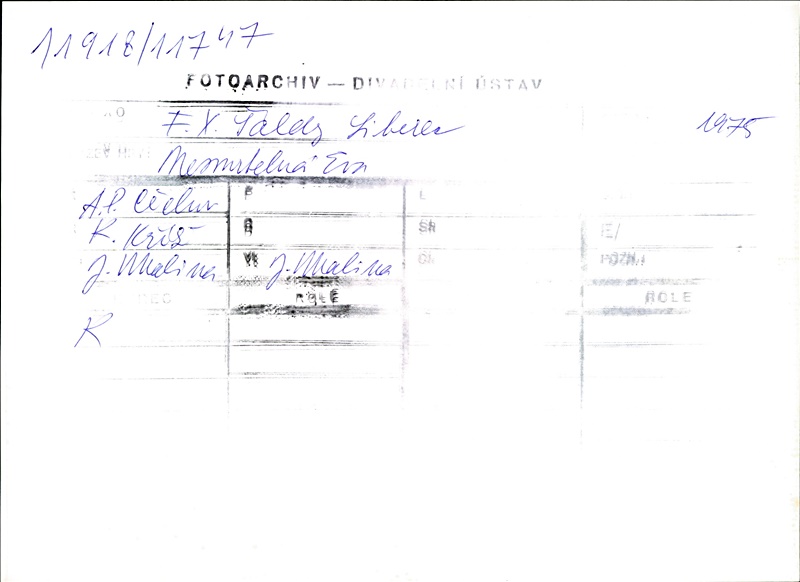 11918/11747
FOTOARCHIV — DIVADELNÍ ÚSTAV
F. X. Šaldy Liberec 1975
Nesmrtelná Eva
A. P. Čechov
R. Kříž E/
J. Malina J. Malina
ROLE ROLE
R